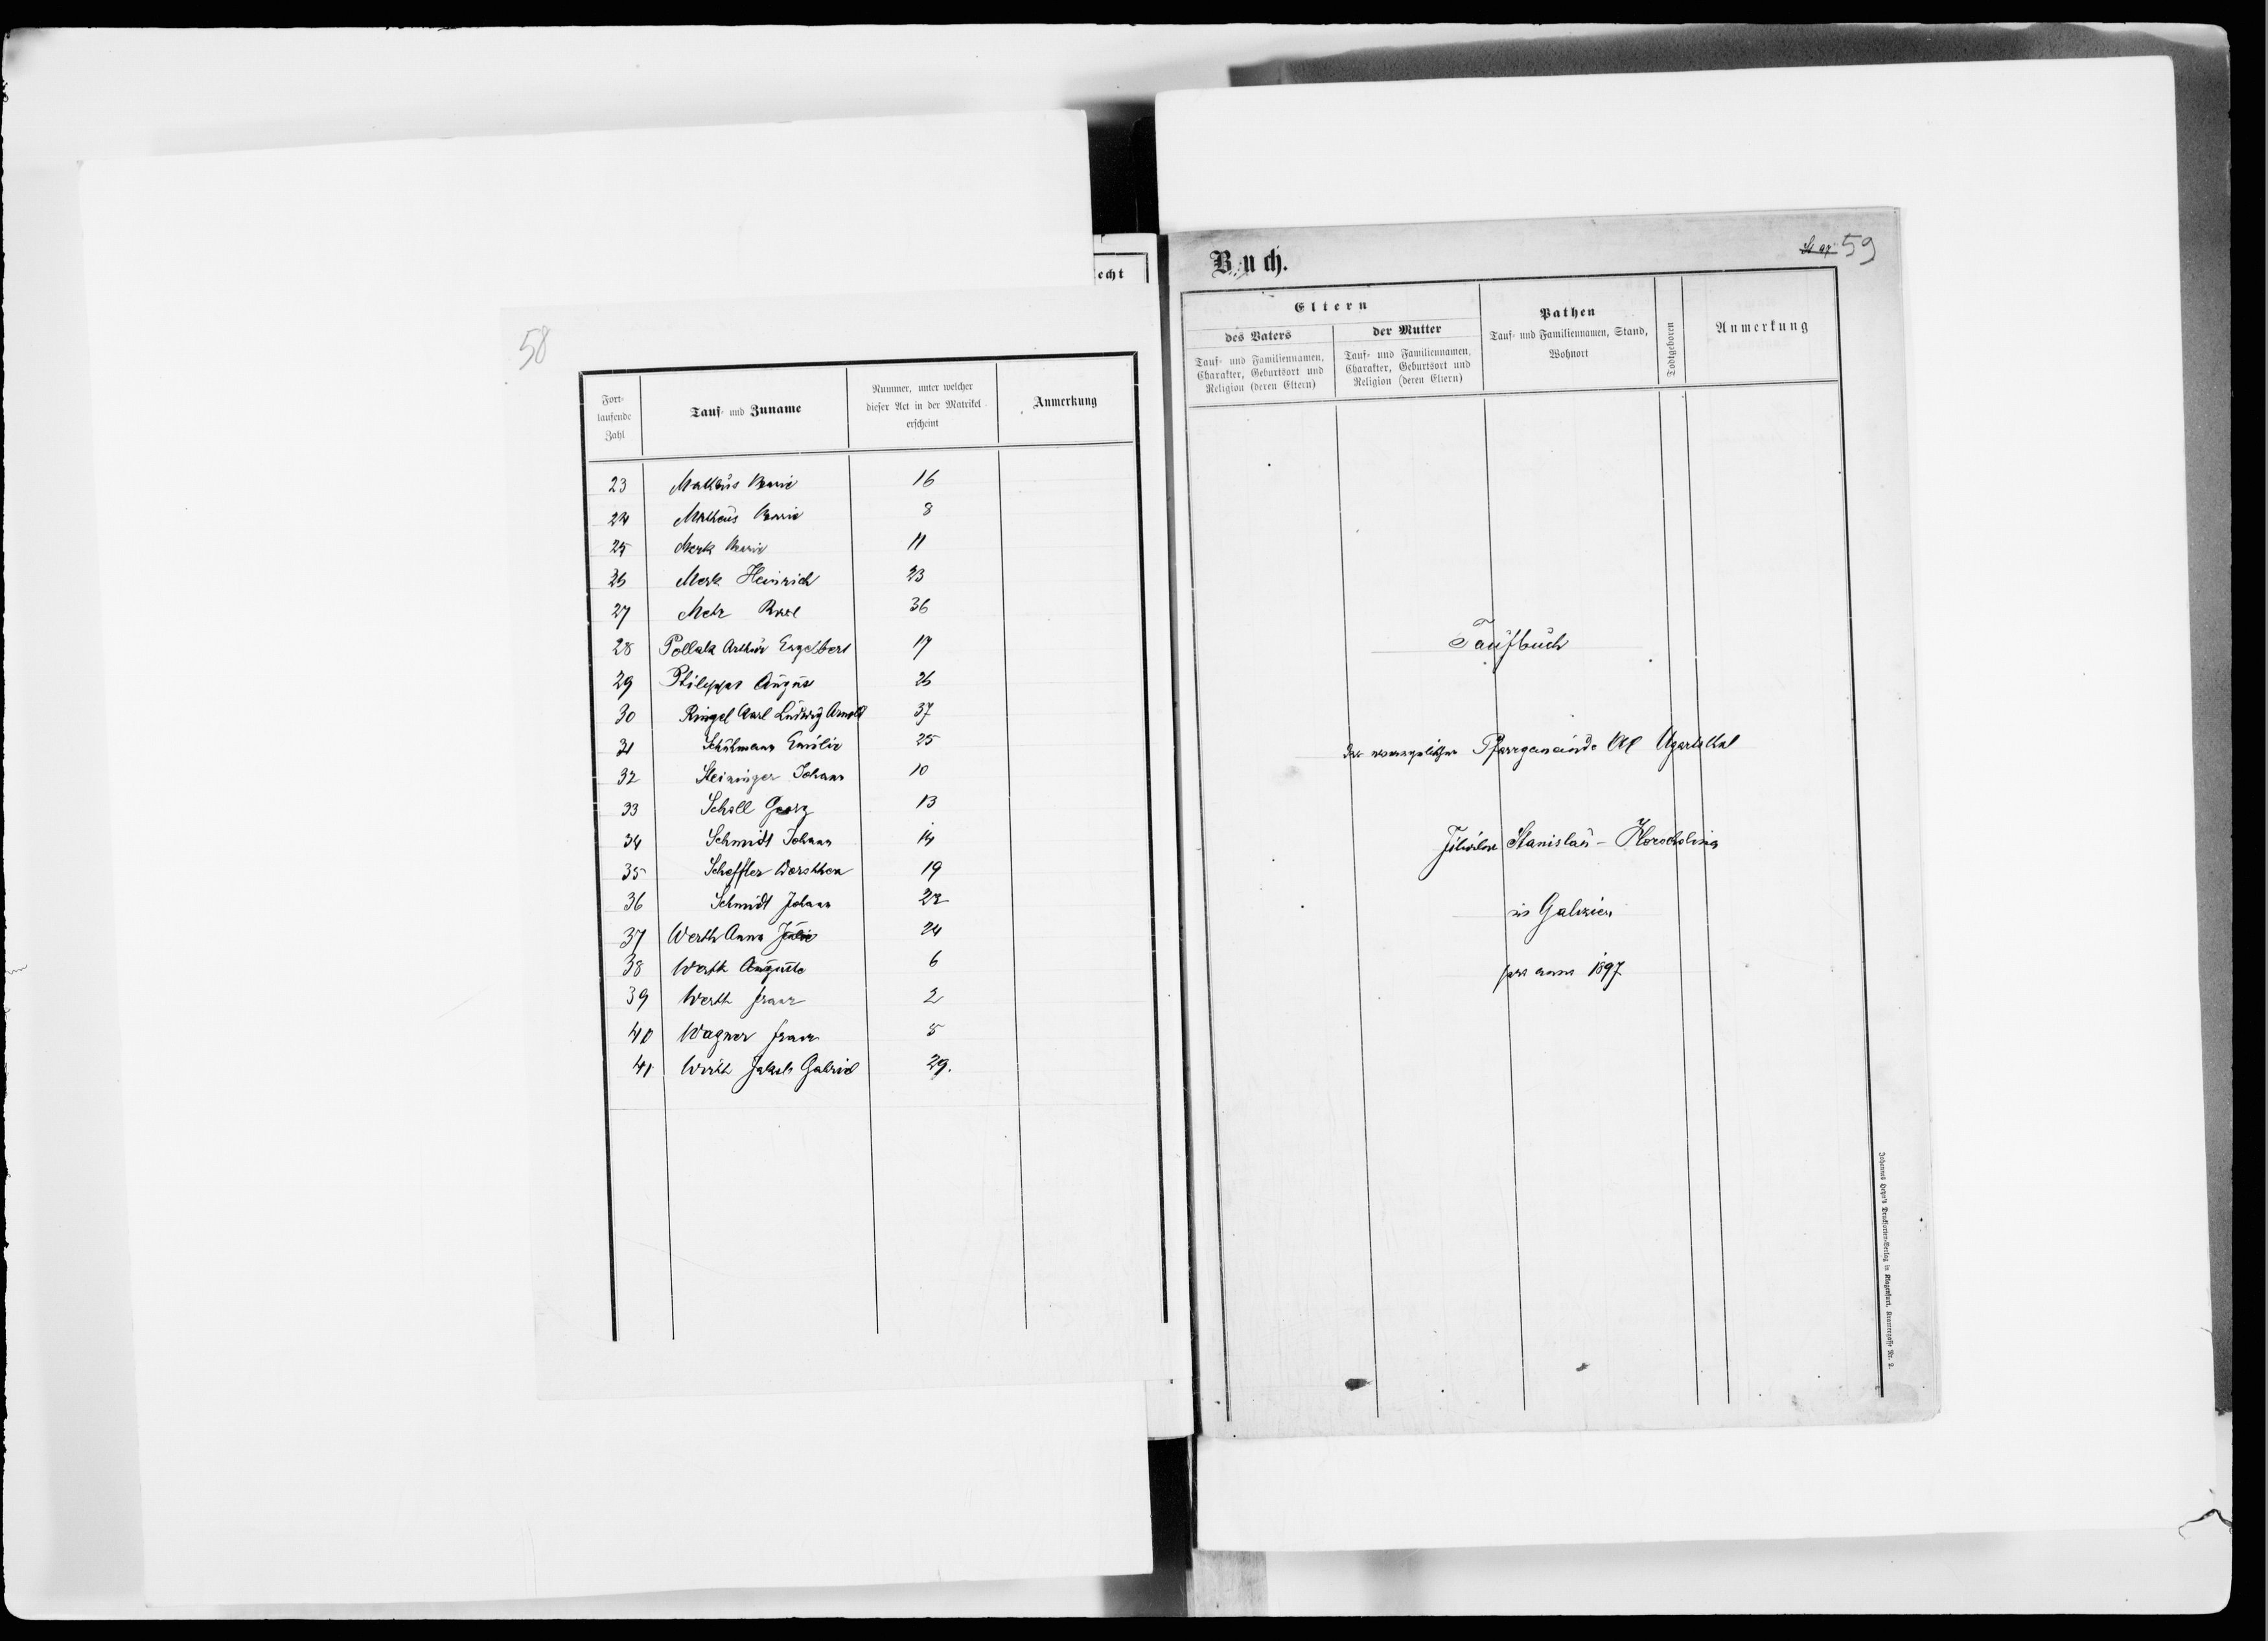 echt
58
Fort-
laufende
Zahl
Tauf- und Zuname
Nummer, unter welcher
dieser Act in der Matrikel
erscheint
Anmerkung
23 Matheüs Marie 16
24 Matheüs Marie 8
25 Merk Marie 11
26 Merk Heinrich 23
27 Metz 36
28 Pollak Arthür Engelbert 17
29 26
30 Ringel Carl Lüdwig Arnold 37
31 Emilie 25
32 Steininger Johann 10
33 Scholl Georg 13
34 Schmidt Johann 14
35 Scheffler Dorothea 19
36 Schmidt Johann 22
37 Werth Anna Julie 24
38 Werth Aügüste 6
39 Werth Franz 2
40 Wagner Franz 5
41 Wirth Jakob Gabriel 29.
Buch.
59
Eltern
des Vaters
Tauf- und Familiennamen,
Charakter, Geburtsort und
Religion (deren Eltern)
der Mutter
Tauf- und Familiennamen,
Charakter, Geburtsort und
Religion (deren Eltern)
Pathen
Tauf- und Familiennamen, Stand,
Wohnort
Todtgeboren
Anmerkung
Taüfbüch
der evangelischen Pfarrgemeinde AC Ugartsthal
Filiale Stanislaü - Horocholina
in Galizien
pro anno 1897
Johannes Heyn's Drucksorten-Verlag in Klagenfurt, Kramergasse Nr. 2.